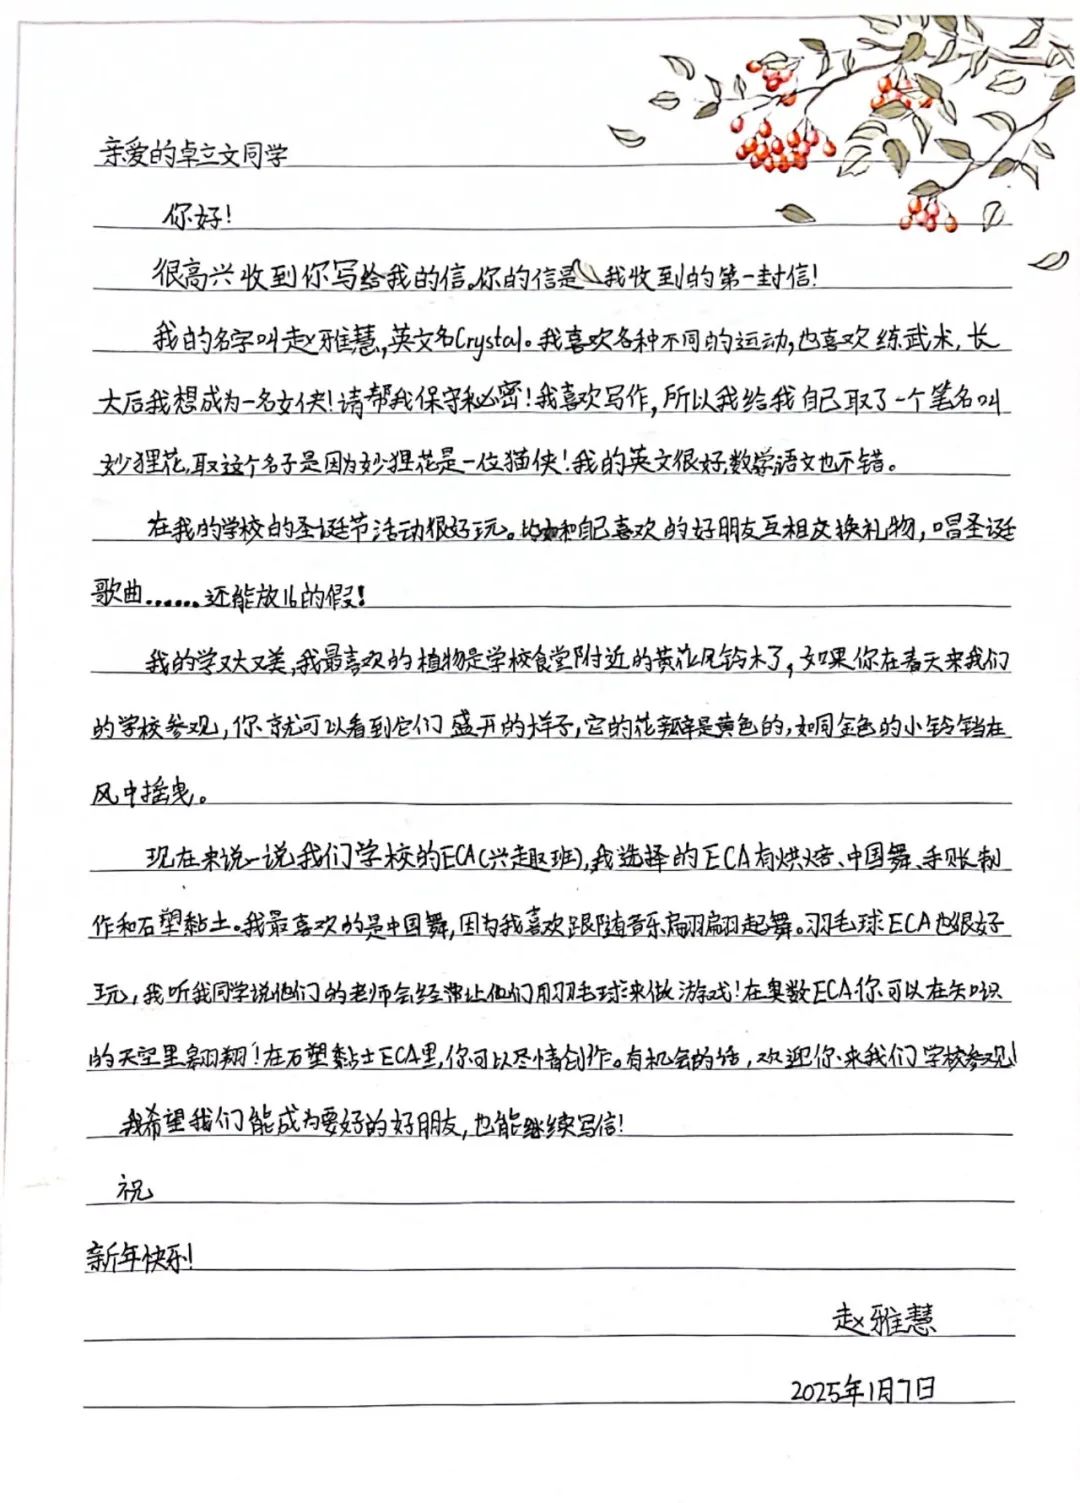 亲爱的卓立文同学
你好！
很高兴收到你写给我的信。你的信是我收到的第一封信！
我的名字叫赵雅慧,英文名Crystal。我喜欢各种不同的运动,也喜欢练武术,长
大后我想成为一名女侠！请帮我保守秘密！我喜欢写作,所以我给我自己取了一个笔名叫
妙狸花,取这个名子是因为妙狸花是一位猫侠！我的英文很好,数学语文也不错。
在我的学校的圣诞节活动很好玩。比如和自己喜欢的好朋友互相交换礼物,唱圣诞
歌曲……还能放16的假！
我的学又大又美,我最喜欢的植物是学校食堂附近的黄花风铃木了,如果你在春天来我们
的学校参观,你就可以看到它们盛开的样子,它的花瓣是黄色的,如同金色的小铃铛在
风中摇曳。
现在来说一说我们学校的ECA(兴趣班),我选择的ECA有烘焙、中国舞、手账制
作和石塑黏土。我最喜欢的是中国舞,因为我喜欢跟随音乐翩翩起舞。羽毛球ECA也很好
玩,我听我同学说他们的老师会经常让他们用羽毛球来做游戏！在奥数ECA你可以在知识
的天空里翱翔！在石塑黏土ECA里,你可以尽情创作。有机会的话,欢迎你来我们学校参观！
我希望我们能成为要好的好朋友,也能继续写信！
祝
新年快乐！
赵雅慧
2025年1月7日